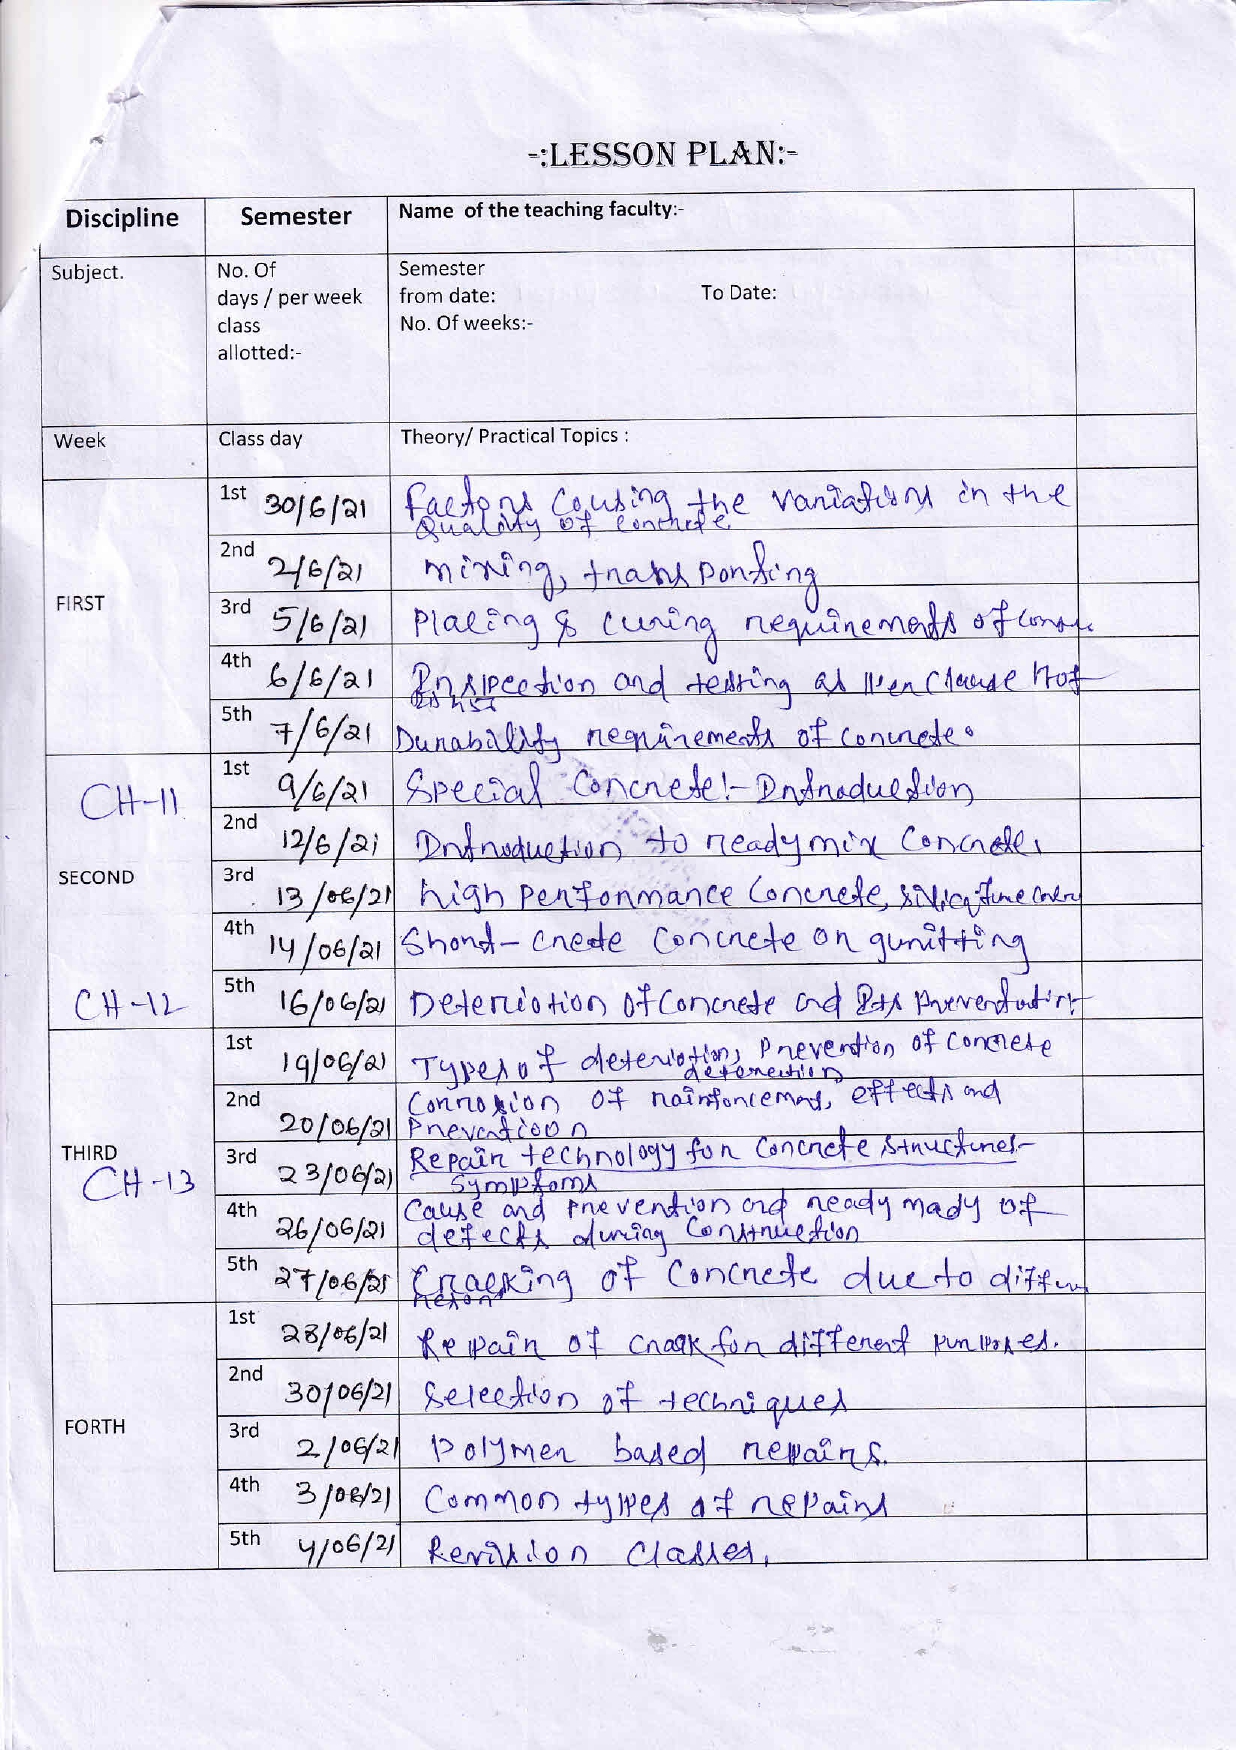 -:LESSON PLAN:-
Discipline Semester Name of the teaching faculty:-
Subject. No. Of days / per week class allotted:- Semester from date: To Date: No. Of weeks:-
Week Class day Theory/ Practical Topics :
FIRST
1st 30/6/21 Factors Causing the variation in the
Quality of Concrete
2nd 2/6/21 mixing, transporting
3rd 5/6/21 Placing & curing requirements of
4th 6/6/21 Inspection and testing as per Clause
5th 7/6/21 Durability requirements of concrete.
CH-11
SECOND
CH-12
1st 9/6/21 Special Concrete:- Introduction
2nd 12/6/21 Introduction to ready mix Concrete,
3rd 13/06/21 high performance Concrete, silica fume
4th 14/06/21 Short-crete Concrete or gunitting
5th 16/06/21 Deteriotion of Concrete and Its
THIRD
CH-13
1st 19/06/21 Types of deteriotion, Prevention of Concrete
2nd 20/06/21 Corrosion of reinforcement, effects and
Prevention
3rd 23/06/21 Repair technology for Concrete Structures-
Symptoms
4th 26/06/21 Cause and prevention and ready mady of
defects during Construction
5th 27/06/21 Cracking of Concrete due to
FORTH
1st 28/06/21 Repair of crack for different purposes.
2nd 30/06/21 Selection of techniques
3rd 2/06/21 Polymer based repairs.
4th 3/06/21 Common types of repairs
5th 4/06/21 Revision Classes.